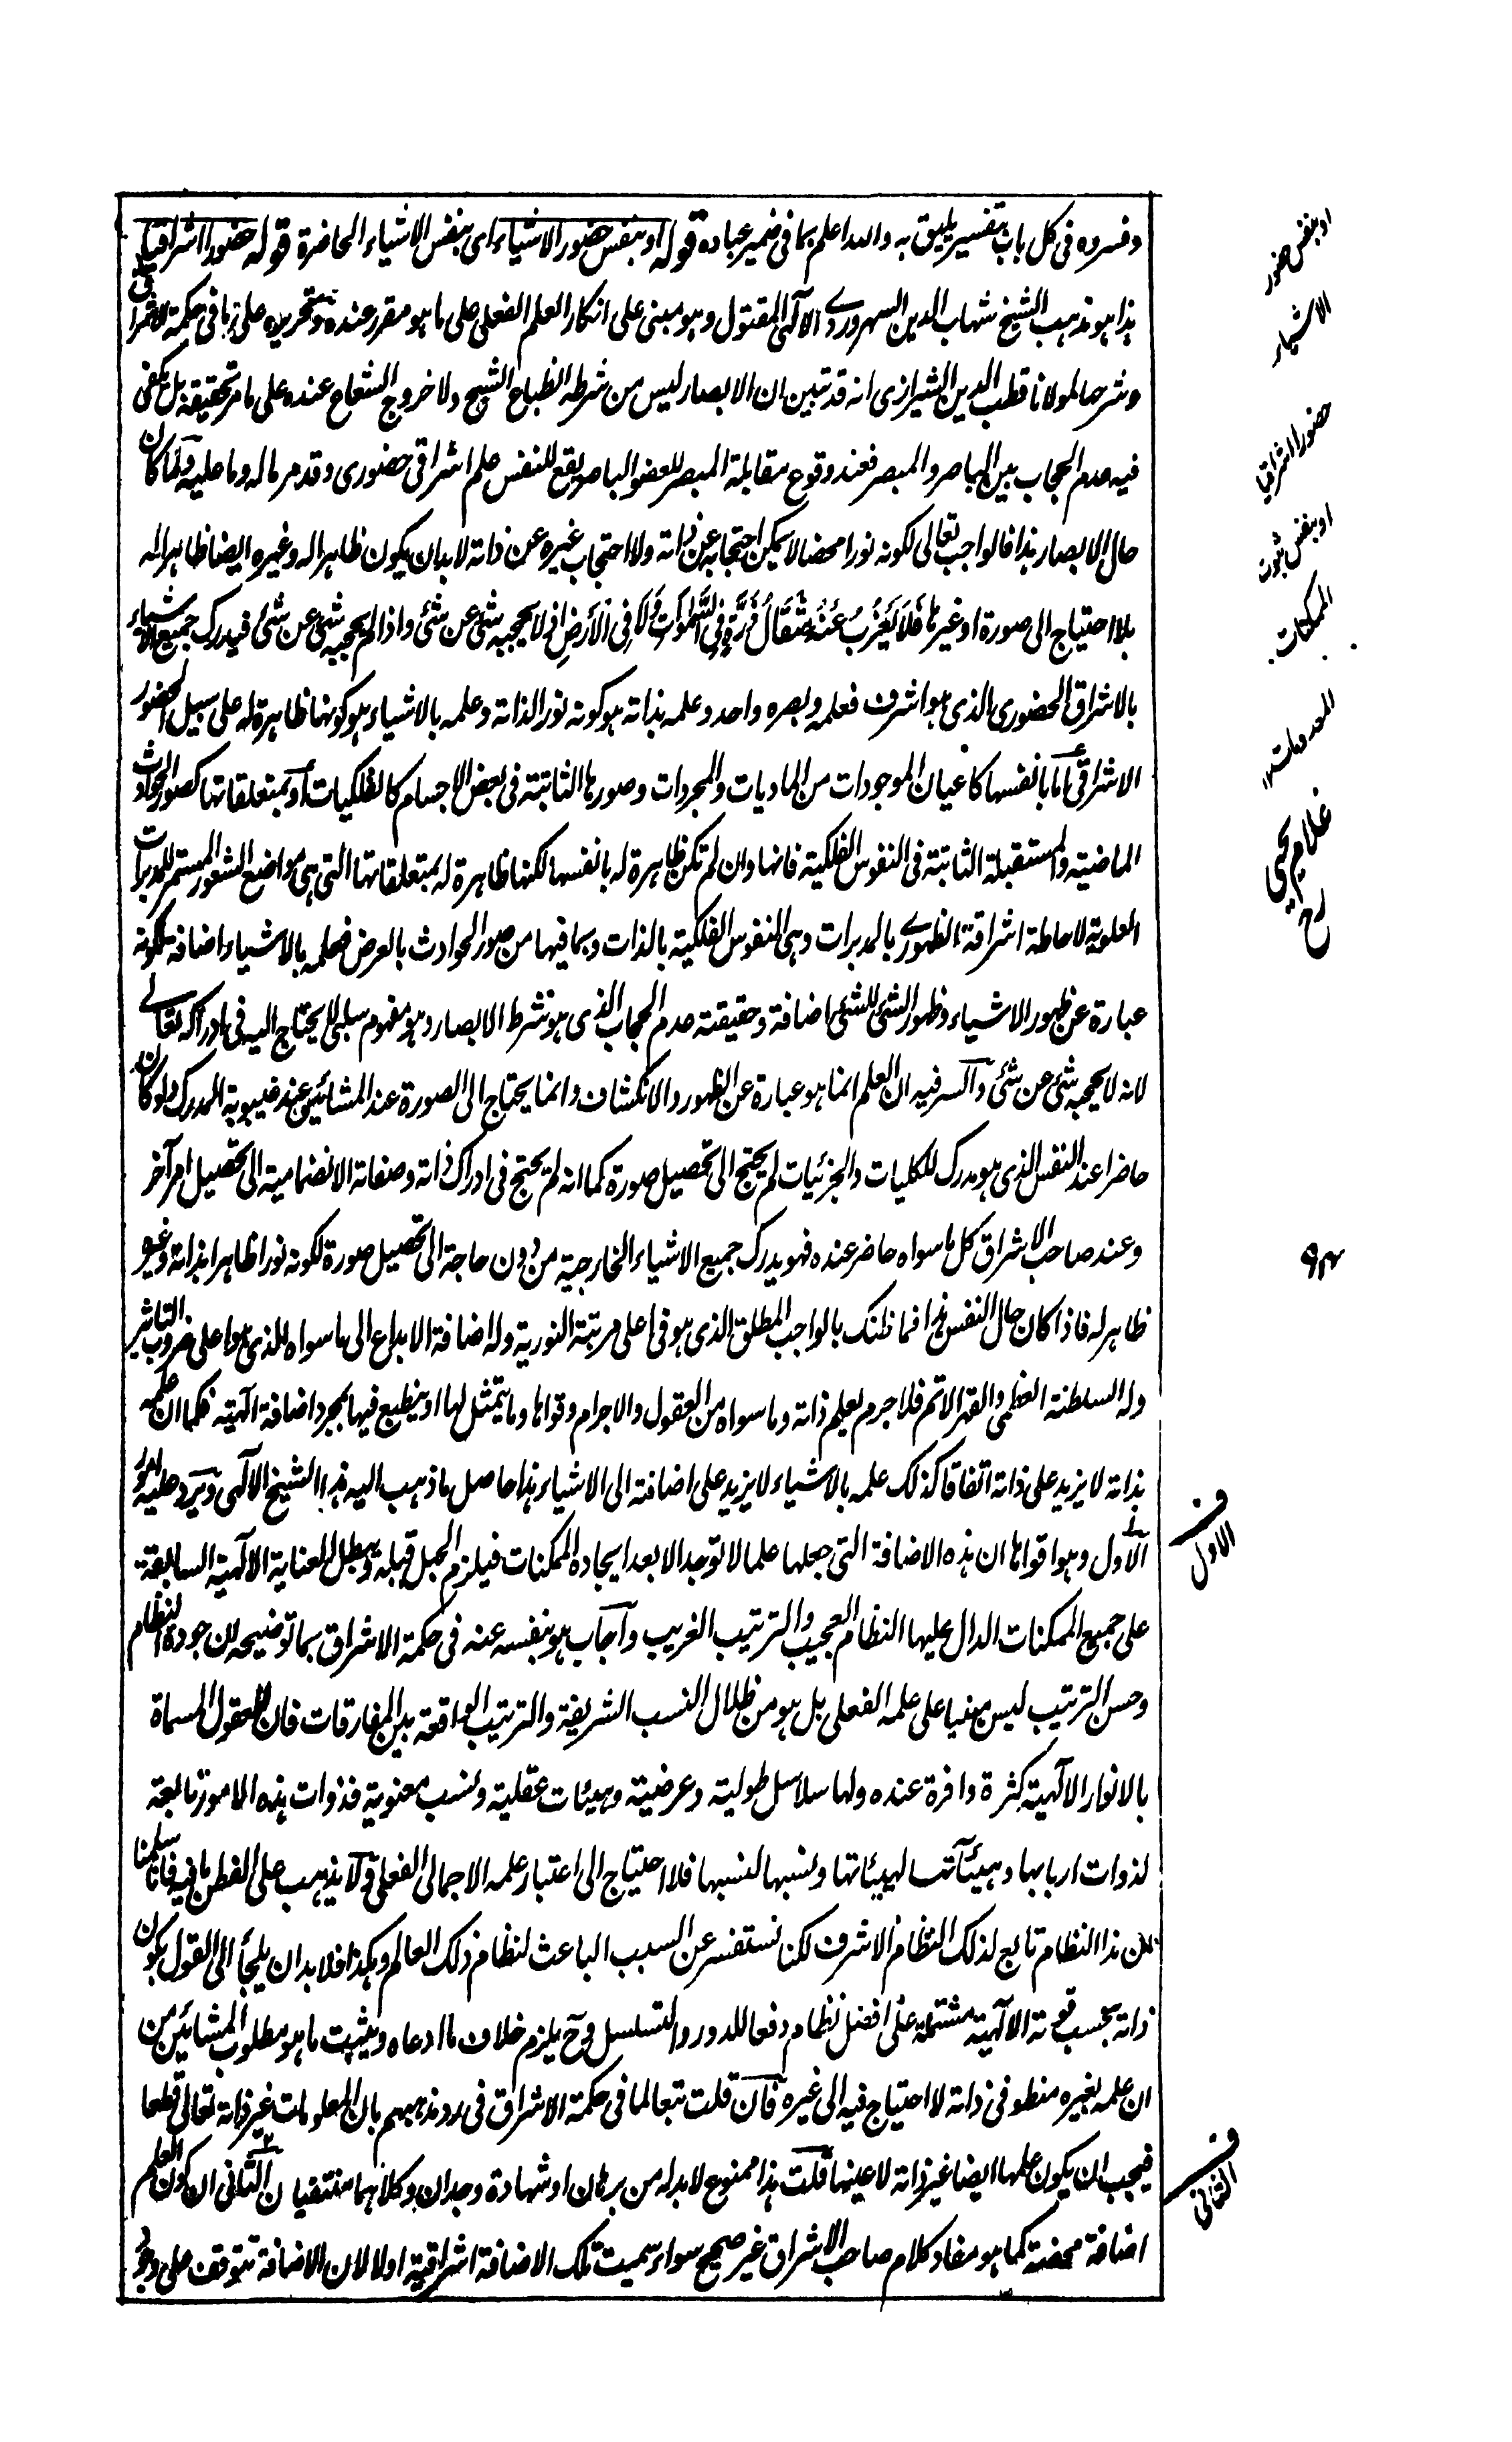 وفسروه فى كل باب بتفسير يليق به والله اعلم بما فى ضمير عباده قوله او بنفس حضور الاشياء اى بنفس الاشياء الحاضرة قوله حضورا اشراقيا
هذا هو مذهب الشيخ شهاب الدين السهروردى الآلهى المقتول وهو مبنى على انكار العلم الفعلى على ما هو مقرر عنده وتحريره على ما فى حكمة الاشراق
وشرحها لمولانا قطب الدين الشيرازى انه قد تبين ان الابصار ليس من شرطه انطباع الشبح ولا خروج الشعاع عنده على ما مر تحقيقه بل يكفى
فيه عدم الحجاب بين الباصر والمبصر فعند وقوع مقابلة المبصر للعضو الباصر يقع للنفس علم اشراقى حضورى وقد مر ماله وما عليه فلما كان
حال الابصار هذا فالواجب تعالى لكونه نورا محضا لا يمكن احتجابه عن ذاته ولا احتجاب غيره عن ذاته لا بد ان يكون ظاهرا له وغيره ايضا ظاهرا له
بلا احتياج الى صورة او غيرها فَلَا يَعْزُبُ عَنْهُ مِثْقَالُ ذَرَّةٍ فِى السَّمٰوٰتِ وَلَا فِى الْاَرْضِ اذ لا يحجبه شئ عن شئ واذا لم يحجبه شئ عن شئ فيدرك جميع الاشياء
بالاشراق الحضورى الذى هو اشرف فعلمه وبصره واحد وعلمه بذاته هو كونه نور الذاته وعلمه بالاشياء هو كونها ظاهرة له على سبيل الحضور
الاشراقى اما بانفسها كاعيان الموجودات من الماديات والمجردات وصورها الثابتة فى بعض الاجسام كالفلكيات او بمتعلقاتها كصور الحوادث
الماضية والمستقبلة الثابتة فى النفوس الفلكية فانها وان لم تكن ظاهرة له بانفسها لكنها ظاهرة له بمتعلقاتها التى هى مواضع الشعور المستمر للمدبرات
العلوية لاحاطة اشراقة الظهورى بالمدبرات وهى النفوس الفلكية بالذات وبما فيها من صور الحوادث بالعرض فعلمه بالاشياء اضافة لكونه
عبارة عن ظهور الاشياء وظهور الشئ للشئ اضافة وحقيقته عدم الحجاب الذى هو شرط الابصار وهو مفهوم سلبى لا يحتاج اليه فى ادراكه تعالى
لانه لا يحجبه شئ عن شئ والسر فيه ان العلم انما هو عبارة عن الظهور والانكشاف وانما يحتاج الى الصورة عند المشائين عند غيبوبة المدرك ولو كان
حاضرا عند النفس الذى هو مدرك للكليات والجزئيات لم يحتج الى تحصيل صورة كما انه لم يحتج فى ادراك ذاته وصفاته الانضمامية الى تحصيل امر آخر
وعند صاحب الاشراق كل ما سواه حاضر عنده فهو يدرك جميع الاشياء الخارجية من دون حاجة الى تحصيل صورة لكونه نورا ظاهرا بذاته وغيره
ظاهر له فاذا كان حال النفس هذا فما ظنك بالواجب المطلق الذى هو فى اعلى مرتبة النورية وله اضافة الابداع الى ما سواه الذى هو اعلى ضروب التاثير
وله السلطنة العظمى والقهر الاتم فلا جرم يعلم ذاته وما سواه من العقول والاجرام وقواها وما يتمثل لها او ينطبع فيها بمجرد اضافة الهية فكما ان علمه
بذاته لا يزيد على ذاته اتفاقا كذلك علمه بالاشياء لا يزيد على اضافته الى الاشياء هذا حاصل ما ذهب اليه هذا الشيخ الالهى ويرد عليه امور
الاول وهو اقواها ان هذه الاضافة التى جعلها علما لا توجد الا بعد ايجاده الممكنات فيلزم الجهل قبله ويبطل العناية الالهية السابقة
على جميع الممكنات الدال عليها النظام العجيب والترتيب الغريب وآجاب هو بنفسه عنه فى حكمة الاشراق بما توضيحه ان جودة النظام
وحسن الترتيب ليس مبنيا على علمه الفعلى بل هو من ظلال النسب الشريفة والترتيب الواقعة بين المفارقات فان للعقول المسماة
بالانوار الالهية كثرة وافرة عنده ولها سلاسل طولية وعرضية وهيئات عقلية ونسب معنوية فذوات هذه الامور تابعة
لذوات اربابها وهيئاتها لهيئاتها ونسبها لنسبها فلا احتياج الى اعتبار علمه الاجمالى الفعلى ولا يذهب على الفطن ما فيه فانا سلمنا
ان هذا النظام تابع لذلك النظام الاشرف لكنا نستفسر عن السبب الباعث لنظام ذلك العالم وهكذا فلا بد ان يلجأ الى القول بكون
ذاته بحسب قوته الالهية مشتملة على افضل نظام دفعا للدور والتسلسل وح يلزم خلاف ما ادعاه ويثبت ما هو مطلوب المشائين من
ان علمه بغيره منطو فى ذاته لا احتياج فيه الى غيره فان قلت تبعا لما فى حكمة الاشراق فى رد مذهبهم بان المعلومات غير ذاته تعالى قطعا
فيجب ان يكون علمها ايضا غير ذاته لا عينها قلت هذا ممنوع لا بد له من برهان او شهادة وجدان وكلاهما منتفيان الثانى ان كون العلم
اضافة محضة كما هو مفاد كلام صاحب الاشراق غير صحيح سواء سميت تلك الاضافة اشراقية او لا لان الاضافة تتوقف على وجود
او بنفس حضور
الاشياء
حضورا اشراقيا
او بنفس ثبوت
الممكنات
المعدومات
غلام يحيى
رح
ف
الاول
ف
الثانى